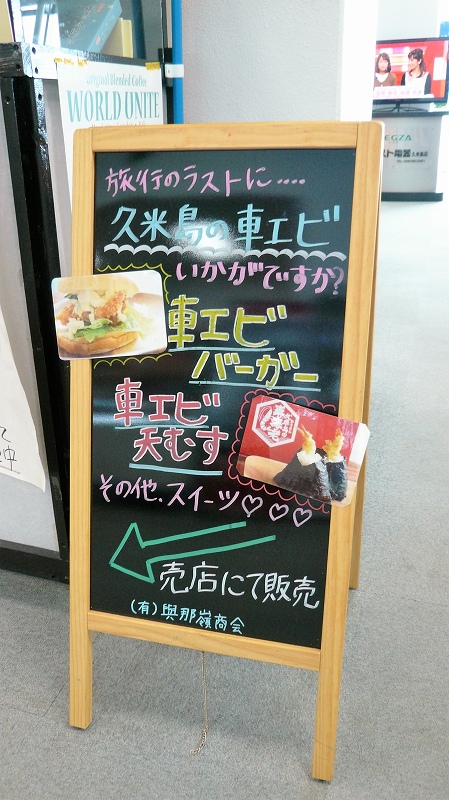 Original Blended Coffee
WORLD UNITE
REGZA
旅行のラストに....
久米島の車エビ
いかがですか?
車エビ
バーガー
車エビ
天むす
その他.スイーツ♡♡♡
売店にて販売
(有)與那嶺商会